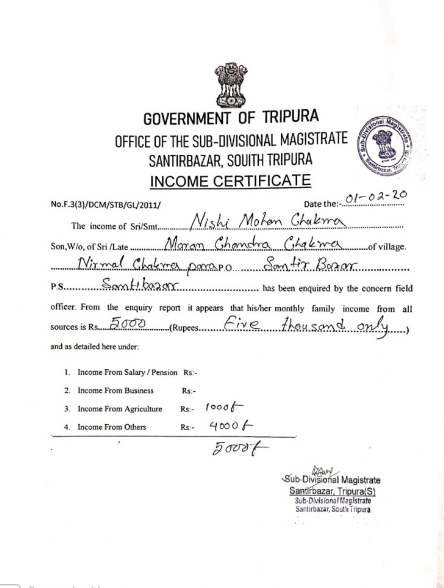 GOVERNMENT OF TRIPURA
OFFICE OF THE SUB-DIVISIONAL MAGISTRATE
SANTIRBAZAR, SOUITH TRIPURA
INCOME CERTIFICATE
No.F.3(3)/DCM/STB/GL/2011/ Date the:- 01-02-20
The income of Sri/Smt. Nishi Mohan Chakma
Son,W/o, of Sri /Late Moran Chandra Chakma of village.
Nirmal Chakma para P.O. Santir Bazar
P.S. Santibazar has been enquired by the concern field
officer. From the enquiry report it appears that his/her monthly family income from all
sources is Rs. 5000 (Rupees Five thousand only)
and as detailed here under:
1. Income From Salary / Pension Rs:-
2. Income From Business Rs:-
3. Income From Agriculture Rs:- 1000/-
4. Income From Others Rs:- 4000/-
5000/-
Sub-Divisional Magistrate
Santirbazar, Tripura(S)
Sub-Divisional Magistrate
Santirbazar, South Tripura